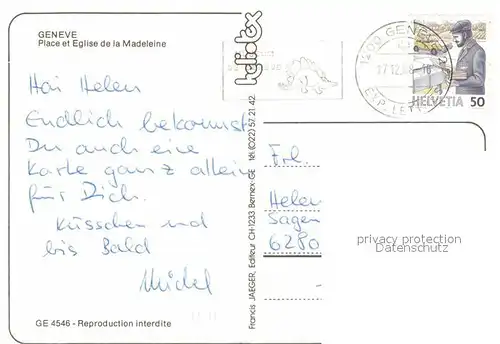 GENEVE
Place et Eglise de la Madeleine
Hoi Helen
Endlich bekommst
Du auch eine
Karte ganz allein
für Dich.
Küsschen und
bis Bald
Michel
GE 4546 - Reproduction interdite
heliotex
Francis JAEGER, Editeur CH-1233 Bernex-GE Tél. (022) 57 21 42
1200 GENEVE 2
17.12.
EXP. LET
HELVETIA 50
Frl.
Helen
Sager
6280
privacy protection
Datenschutz